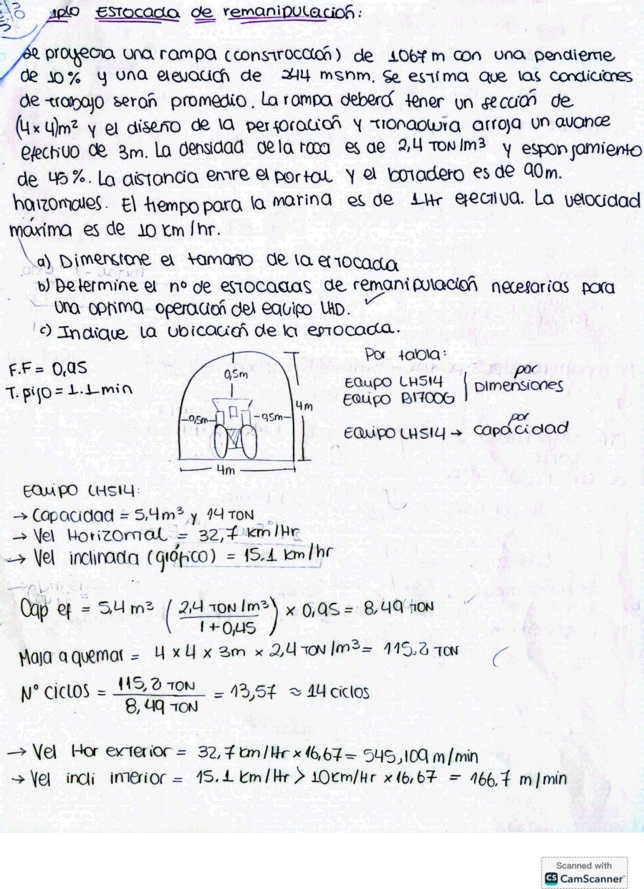 ESTOCADA DE REMANIPULACIÓN:
Se proyecta una rampa (construcción) de 1067 m con una pendiente
de 10% y una elevación de 244 msnm. Se estima que las condiciones
de trabajo serán promedio. La rampa deberá tener un sección de
(4 x 4)m² y el diseño de la perforación y tronadura arroja un avance
efectivo de 3m. La densidad de la roca es de 2,4 TON/m³ y esponjamiento
de 45%. La distancia entre el portal y el botadero es de 90m.
horizontales. El tiempo para la marina es de 1Hr efectiva. La velocidad
máxima es de 10 km/hr.
a) Dimensione el tamaño de la estocada
b) Determine el nº de estocadas de remanipulación necesarias para
una optima operación del equipo LHD.
c) Indique la ubicación de la estocada.
F.F = 0,95
T. fijo = 1.1 min
0,5m
0,5m
0,5m
4m
4m
Por tabla:
Equipo LH514
Equipo R1700G
por
Dimensiones
Equipo LH514 → por capacidad
Equipo LH514:
→ Capacidad = 5,4 m³ y 14 TON
→ Vel Horizontal = 32,7 km/Hr
→ Vel inclinada (gráfico) = 15.1 km/hr
Cap ef = 5,4 m³ (2,4 TON/m³ / 1+0,45) x 0,95 = 8,49 TON
= 4 x 4 x 3m x 2,4 TON/m³ = 115,2 TON
Nº Ciclos = 115,2 TON / 8,49 TON = 13,57 ≈ 14 ciclos
→ Vel Hor exterior = 32,7 km/Hr x 16,67 = 545,109 m/min
→ Vel incli interior = 15.1 km/Hr > 10km/Hr x 16,67 = 166,7 m/min
Scanned with
CS CamScanner